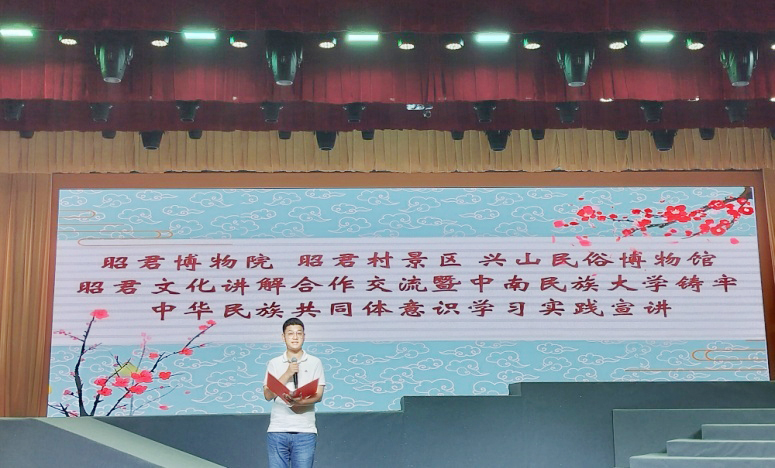 昭君博物院 昭君村景区 兴山民俗博物馆
昭君文化讲解合作交流暨中南民族大学铸牢
中华民族共同体意识学习实践宣讲